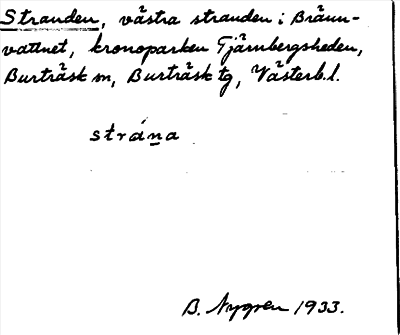 Stranden, västra stranden i Bränn-
vattnet, kronoparken Tjärnbergsheden,
Burträsk sn, Burträsk tg, Västerb.l.
strána
B. Nygren 1933.